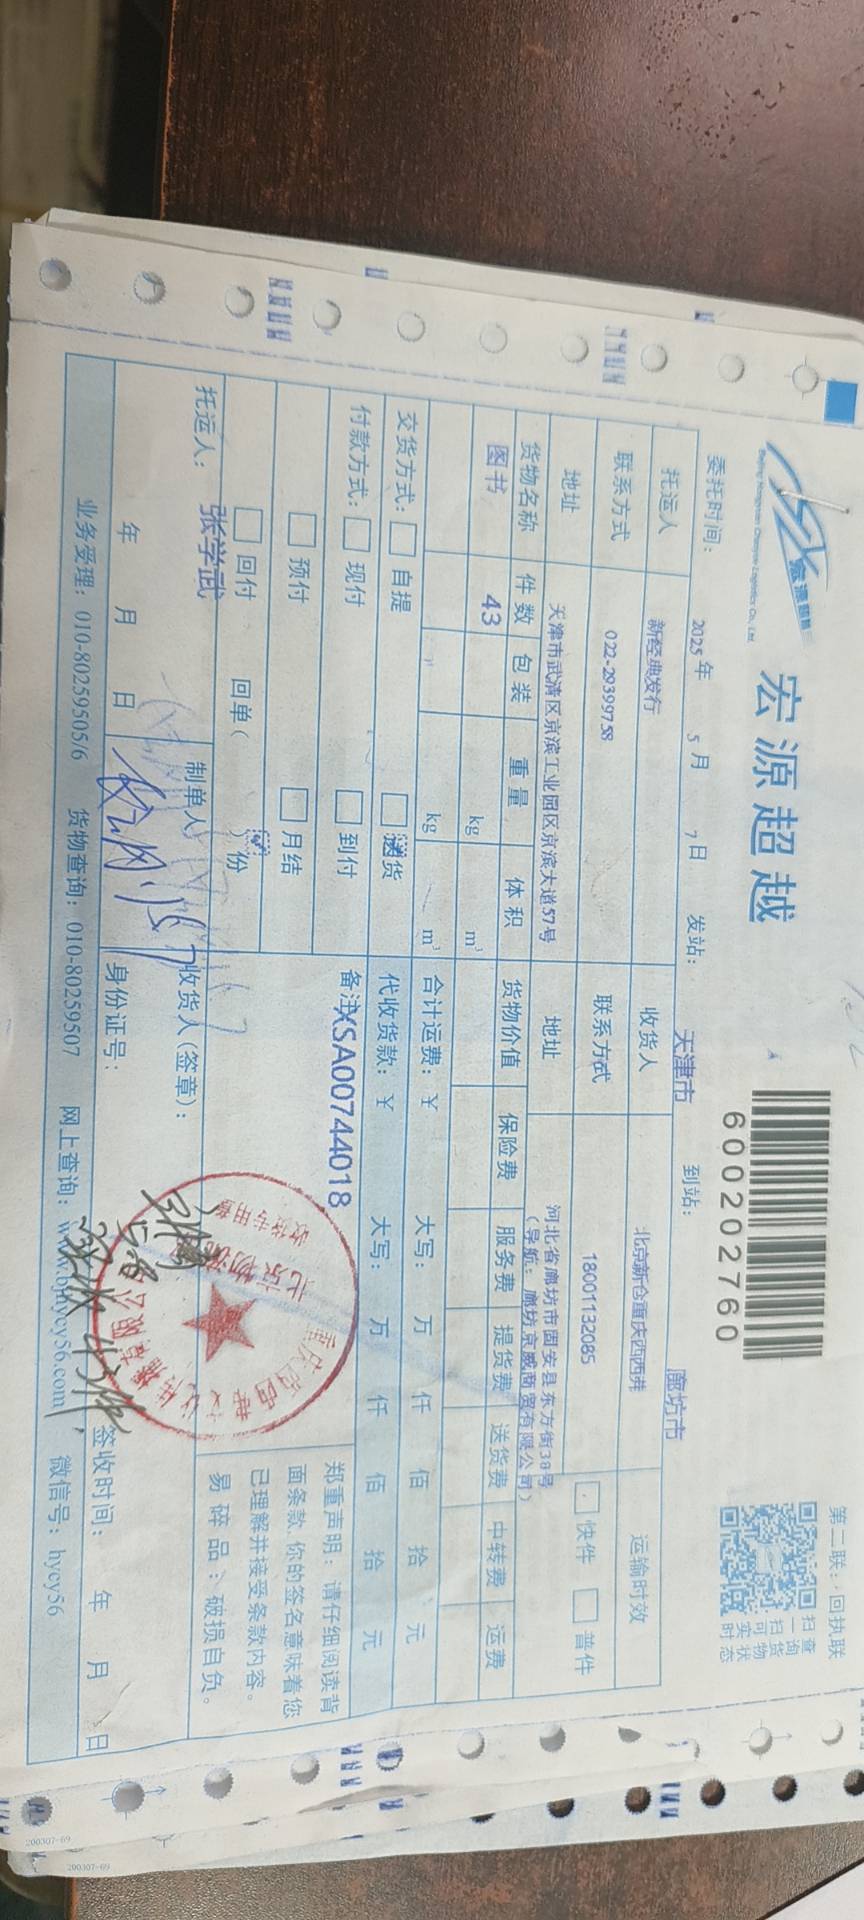 宏源超越
Beijing Hongyuan Chaoyue Logistics Co., Ltd.
宏源超越
600202760
第二联：回执联
扫一扫可实时
查询货物状态
委托时间： 2025 年 5 月 7 日 发站： 天津市 到站： 廊坊市
托运人 新经典发行 收货人 北京新仓重庆西西弗 运输时效
联系方式 022-29399758 联系方式 18001132085 快件 普件
地址 天津市武清区京滨工业园区京滨大道57号 地址 河北省廊坊市固安县东方街38号
（导航：廊坊京威商贸有限公司）
货物名称 件数 包装 重量 体积 货物价值 保险费 服务费 提货费 送货费 中转费 运费
图书 43 kg m³
kg m³
交货方式： 自提 送货 合计运费：￥ 大写： 万 仟 佰 拾 元
付款方式： 现付 到付 代收货款：￥ 大写： 万 仟 佰 拾 元
预付 月结 备注XSA00744018
回付 回单（ ）份
郑重声明：请仔细阅读背
面条款，你的签名意味着您
已理解并接受条款内容。
易碎品：破损自负。
托运人： 张学武 制单人 收货人（签章）：
年 月 日 身份证号： 签收时间： 年 月 日
北京物流
收货专用章
业务受理：010-80259505/6 货物查询：010-80259507 网上查询：www.bjhycy56.com 微信号：hycy56
200307-69
200307-69